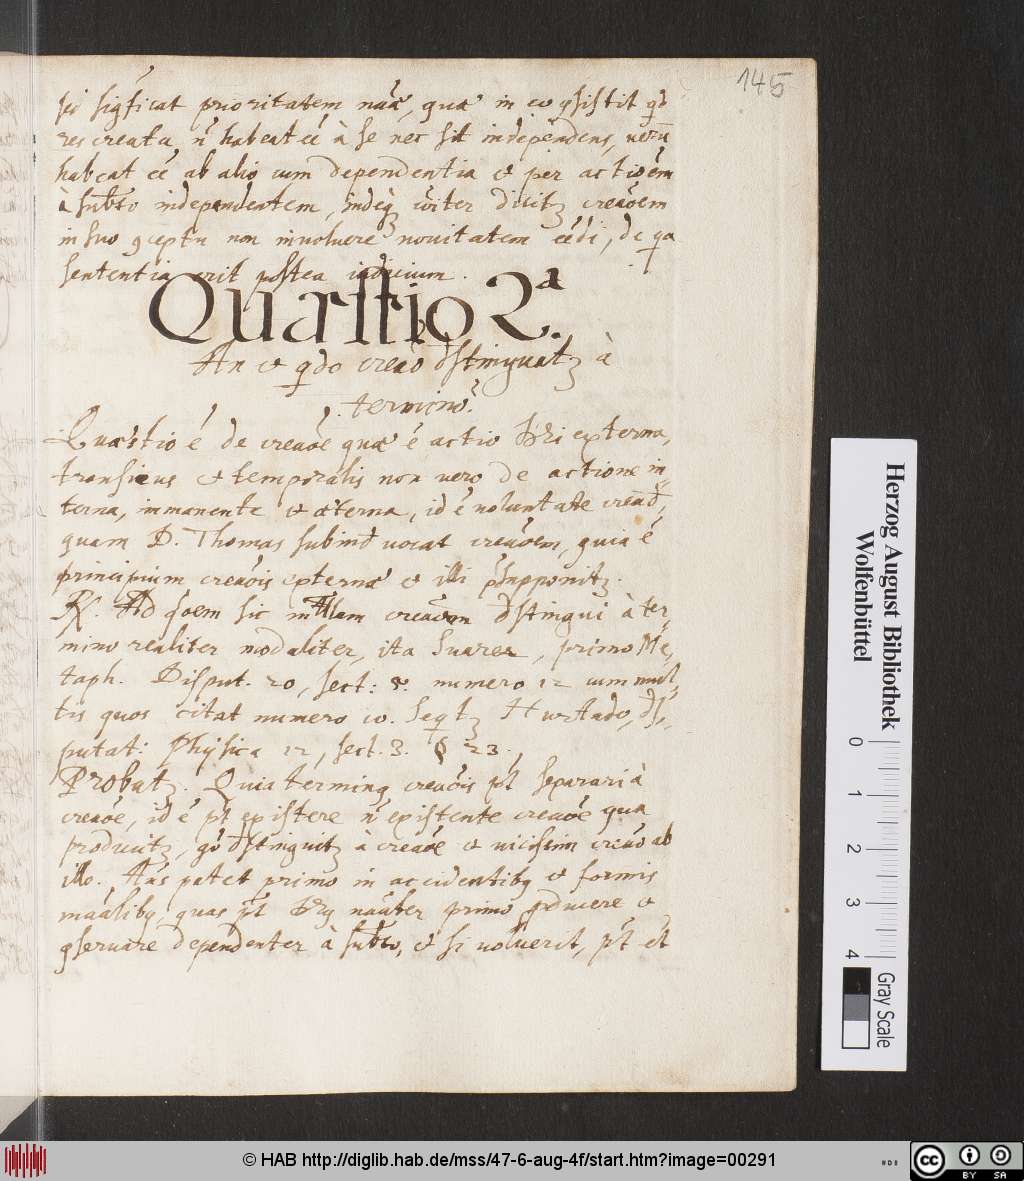 145
sed sigficat prioritatem nãæ, quæ in eo ꝯsistit qd
res creata, ñ habeat eẽ à se nec sit independens, verũ
habeat eẽ ab alio cum dependentia et per actiõem
à subto independentem, indeq; cõiter dicitz creaõem
in suo ꝯceptu non involuere novitatem eẽdi, de qa
sententia erit postea iudicium.
Quæstio 2a.
An et qdo creaõ dstinguatz à
termino?
Quæstio é de creaõe quæ é actio externa,
transiens et temporalis non vero de actione in-
terna, immanente et æterna, id é voluntate creandi,
quam D. Thomas subinde vocat creaõem, quia é
principium creaõis externæ et illi psupponitz.
R. Ad qoem sic creaõem dstingui à ter-
mino realiter modaliter, ita Suarez, primo Me-
taph. Disput. 20, sect: 4. numero 12 cum mul-
tis quos citat numero 10. Seqtz Hurtado, dis-
putat: Physica 12, sect. 3. § 23.
Probatz. Quia terminꝰ creaõis pt separari à
creaõe, id é pt existere ñ existente creaõe qua
producitz, go dstinguitz à creaõe et vicissim creaõ ab
illo. Añs patet primo in accidentibꝰ et formis
maãlibꝰ, quas pt nãliter primo ꝓducere et
ꝯservare dependenter à subto, et si voluerit, pt et
Herzog August Bibliothek
Wolfenbüttel
0 1 2 3 4
Gray Scale
© HAB http://diglib.hab.de/mss/47-6-aug-4f/start.htm?image=00291
cc BY SA